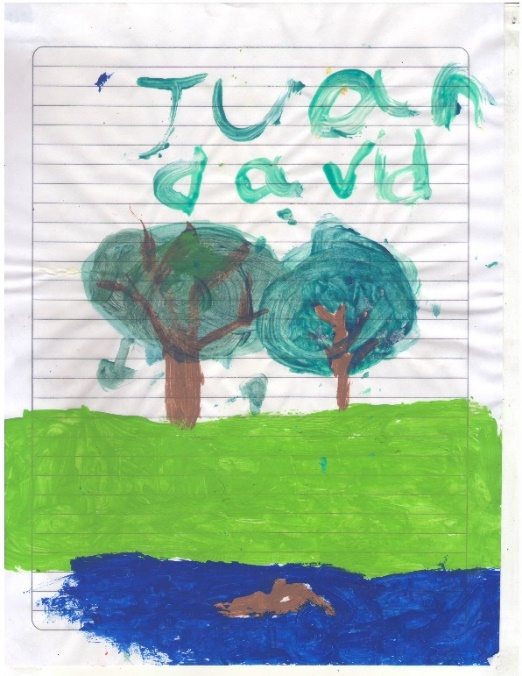 Juan
david